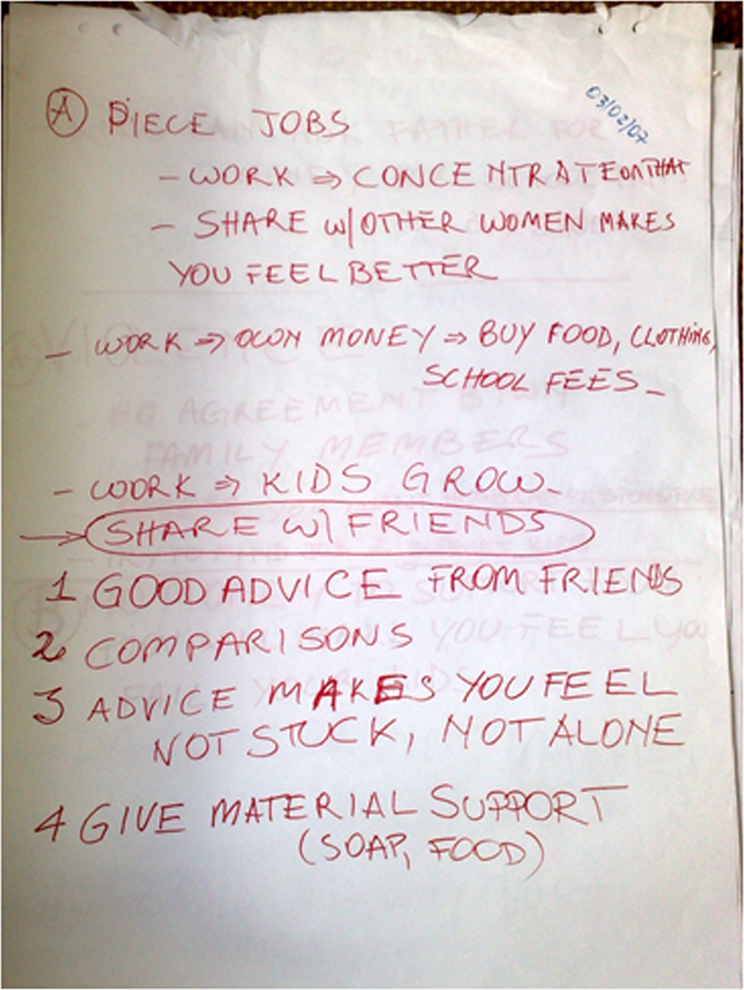 03/02/07
Ⓐ PIECE JOBS
- WORK ⇒ CONCENTRATE ON THAT
- SHARE W/OTHER WOMEN MAKES
YOU FEEL BETTER
- WORK ⇒ OWN MONEY ⇒ BUY FOOD, CLOTHING,
SCHOOL FEES -
- WORK ⇒ KIDS GROW -
→ SHARE W/ FRIENDS
1 GOOD ADVICE FROM FRIENDS
2 COMPARISONS
3 ADVICE MAKES YOU FEEL
NOT STUCK, NOT ALONE
4 GIVE MATERIAL SUPPORT
(SOAP, FOOD)
NO AGREEMENT
FAMILY MEMBERS